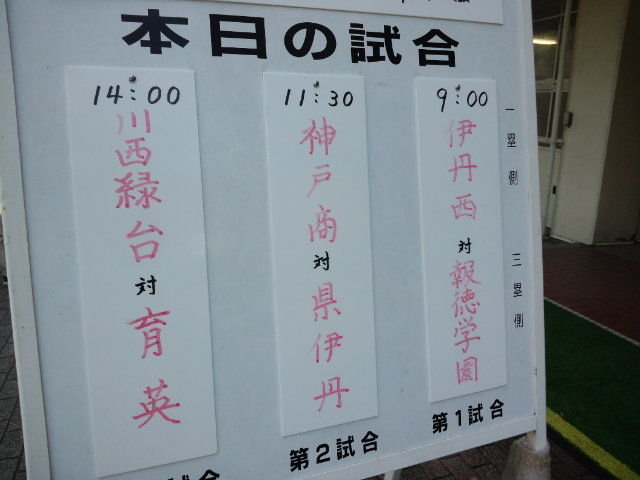 本日の試合
9:00
伊丹西
対
報徳学園
一塁側
三塁側
第1試合
11:30
神戸商
対
県伊丹
第2試合
14:00
川西緑台
対
育英
試合